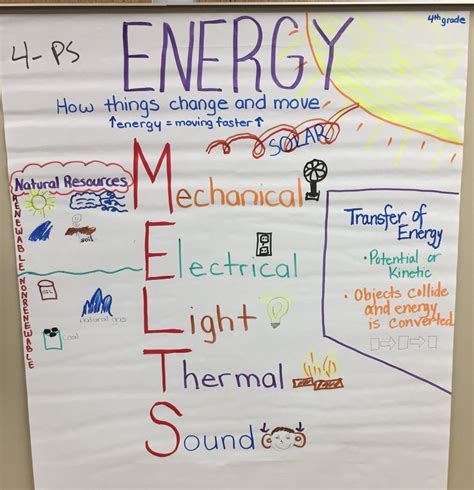 4th grade
4-PS
ENERGY
How things change and move
↑energy = moving faster↑
SOLAR
Natural Resources
RENEWABLE
soil
NONRENEWABLE
OIL
natural gas
Coal
MELTS
Mechanical
Electrical
Light
Thermal
Sound
Transfer of
Energy
• Potential or
Kinetic
• Objects collide
and energy
is converted